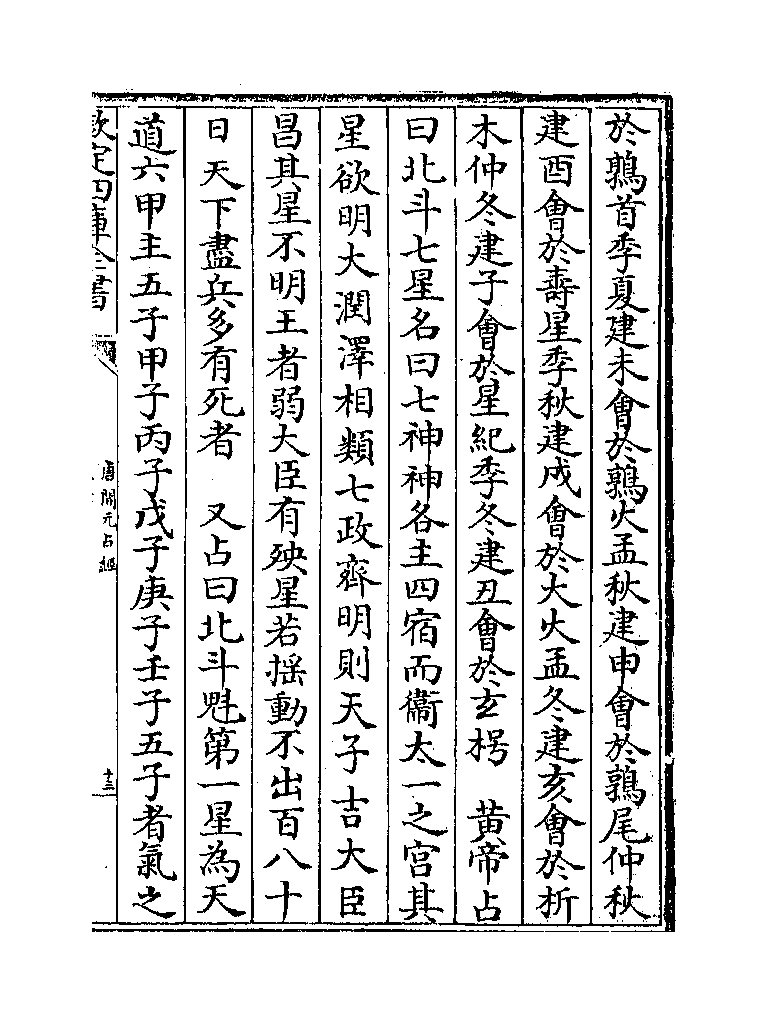 於鶉首季夏建未會於鶉火孟秋建申會於鶉尾仲秋
建酉會於壽星季秋建戌會於大火孟冬建亥會於析
木仲冬建子會於星紀季冬建丑會於玄枵　黄帝占
曰北斗七星名曰七神神各主四宿而衞太一之宫其
星欲明大潤澤相類七政齊明則天子吉大臣
昌其星不明王者弱大臣有殃星若揺動不出百八十
日天下盡兵多有死者　又占曰北斗魁第一星為天
道六甲主五子甲子丙子戊子庚子壬子五子者氣之
欽定四庫全書
唐開元占經
十三